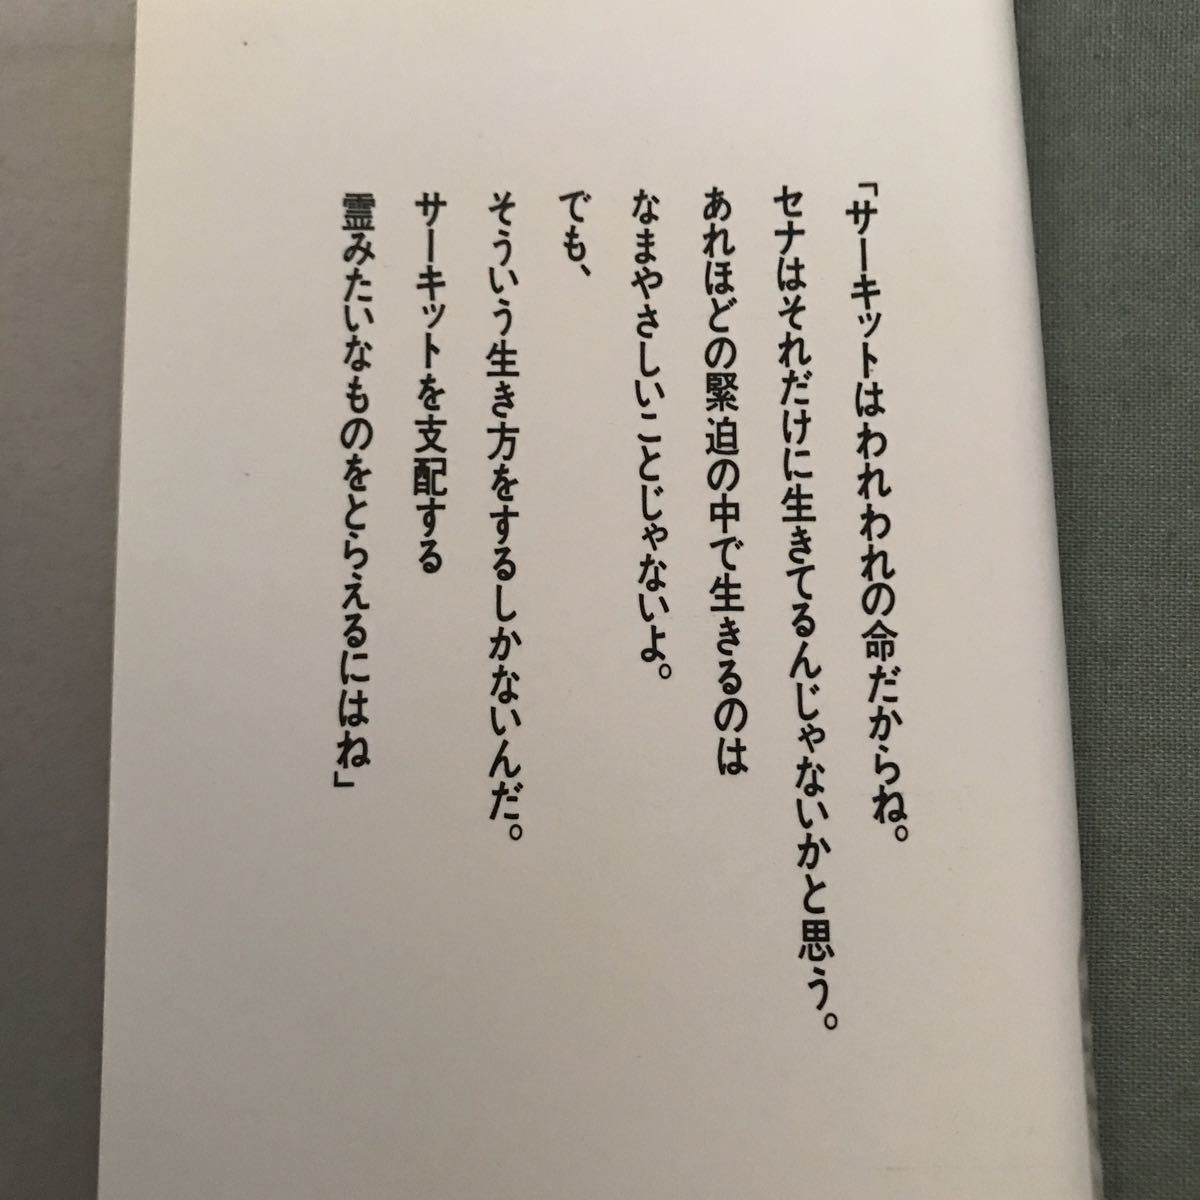 「サーキットはわれわれの命だからね。
セナはそれだけに生きてるんじゃないかと思う。
あれほどの緊迫の中で生きるのは
なまやさしいことじゃないよ。
でも、
そういう生き方をするしかないんだ。
サーキットを支配する
霊みたいなものをとらえるにはね」